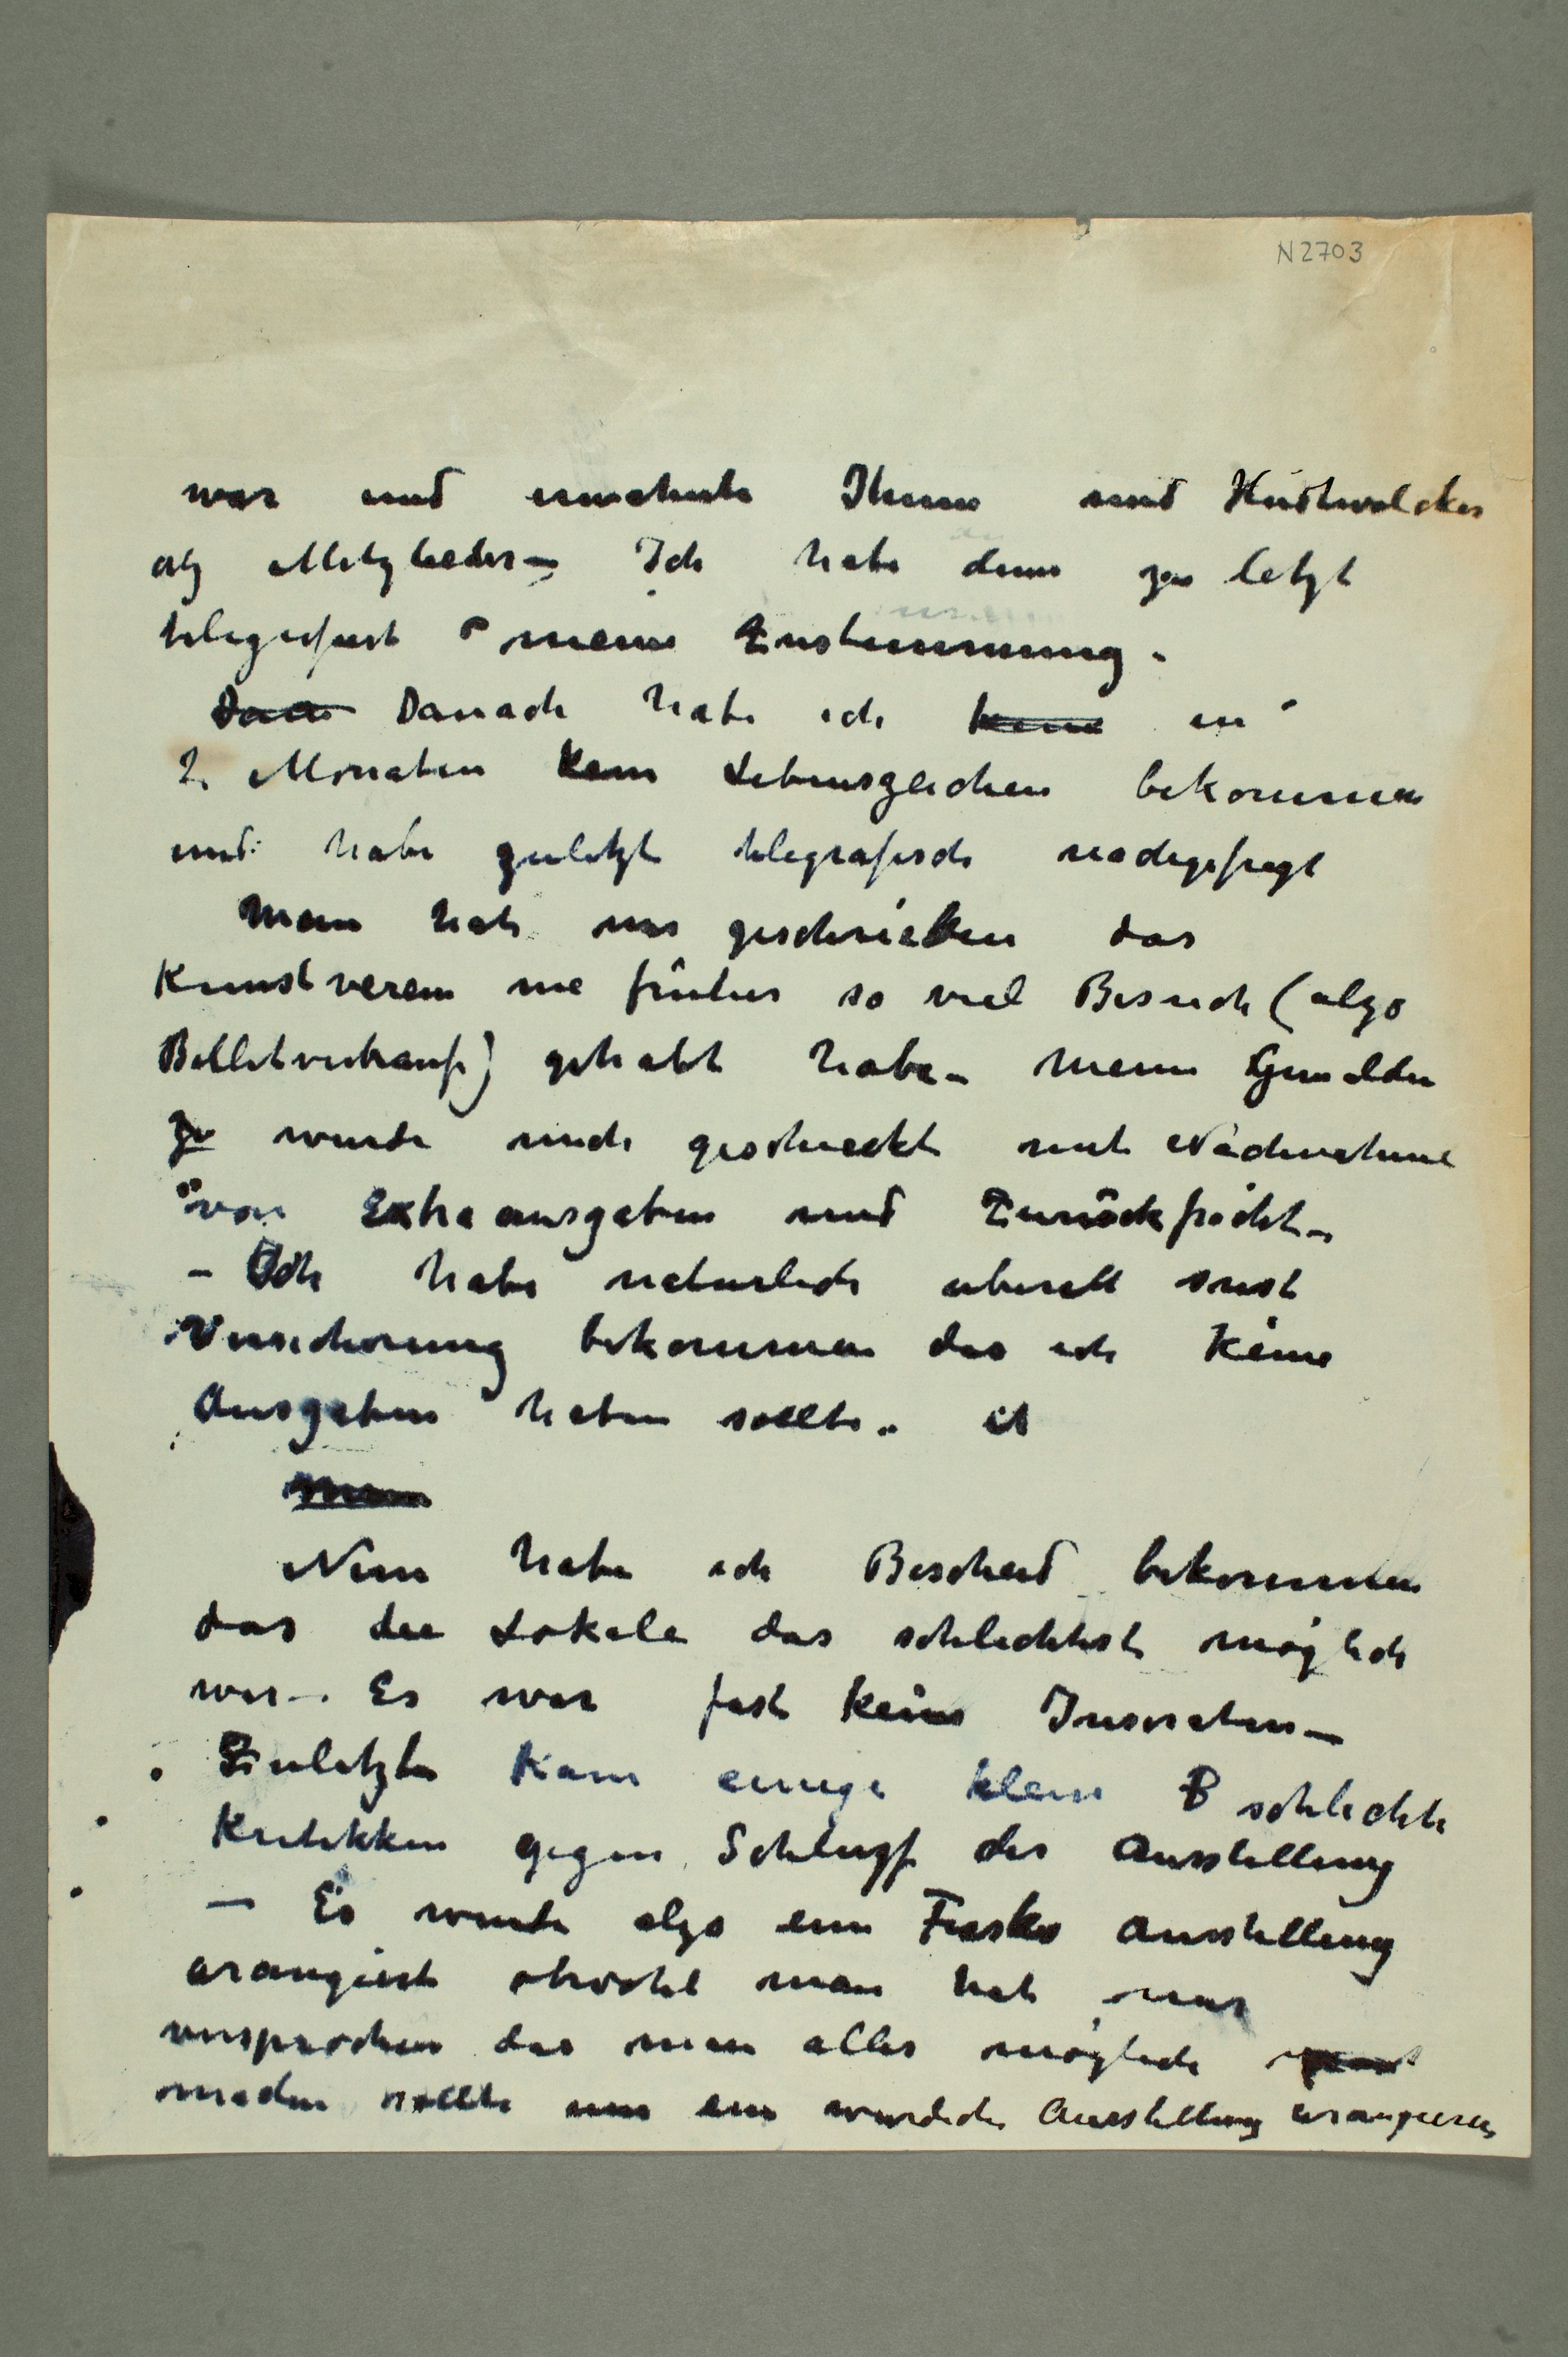 N2703
war und erwahnte Ihnen und Hudtwalcker
alz Mitglieder – Ich habe denn zu letzt
telegrafiert meine Zustimmung.
Danach habe ich keine in
2 Monaten kein Lebenszeichen bekommen
und habe zuletzt telegrafisch nachgefragt
Man hat mir geschrieben das
Kunstverein nie früher so viel Besuch (alzo
Billetverkauf) gehabt habe – Meine Gemälde
zu wurde mich geschieckt mit Nachnahme
von Extraausgaben und Zurückfracht –
– Ich habe naturlich uberall sonst
Versicherung bekommen das ich keine
Ausgaben haben sollte.
Nun habe ich Bescheid bekommen
das die Lokale das schlechtest möglich
war –. Es war fast keine Inseraten –
Zuletzt kam einige kleine B schlechte
Kritikken gegen Schluss der Ausstellung
– Es wurde alzo ein Fiasko Ausstellung
arangiert obwohl man hat mir
versprochen das man alles mögliche
machen sollte um ein wurdiche Ausstellung arangieren